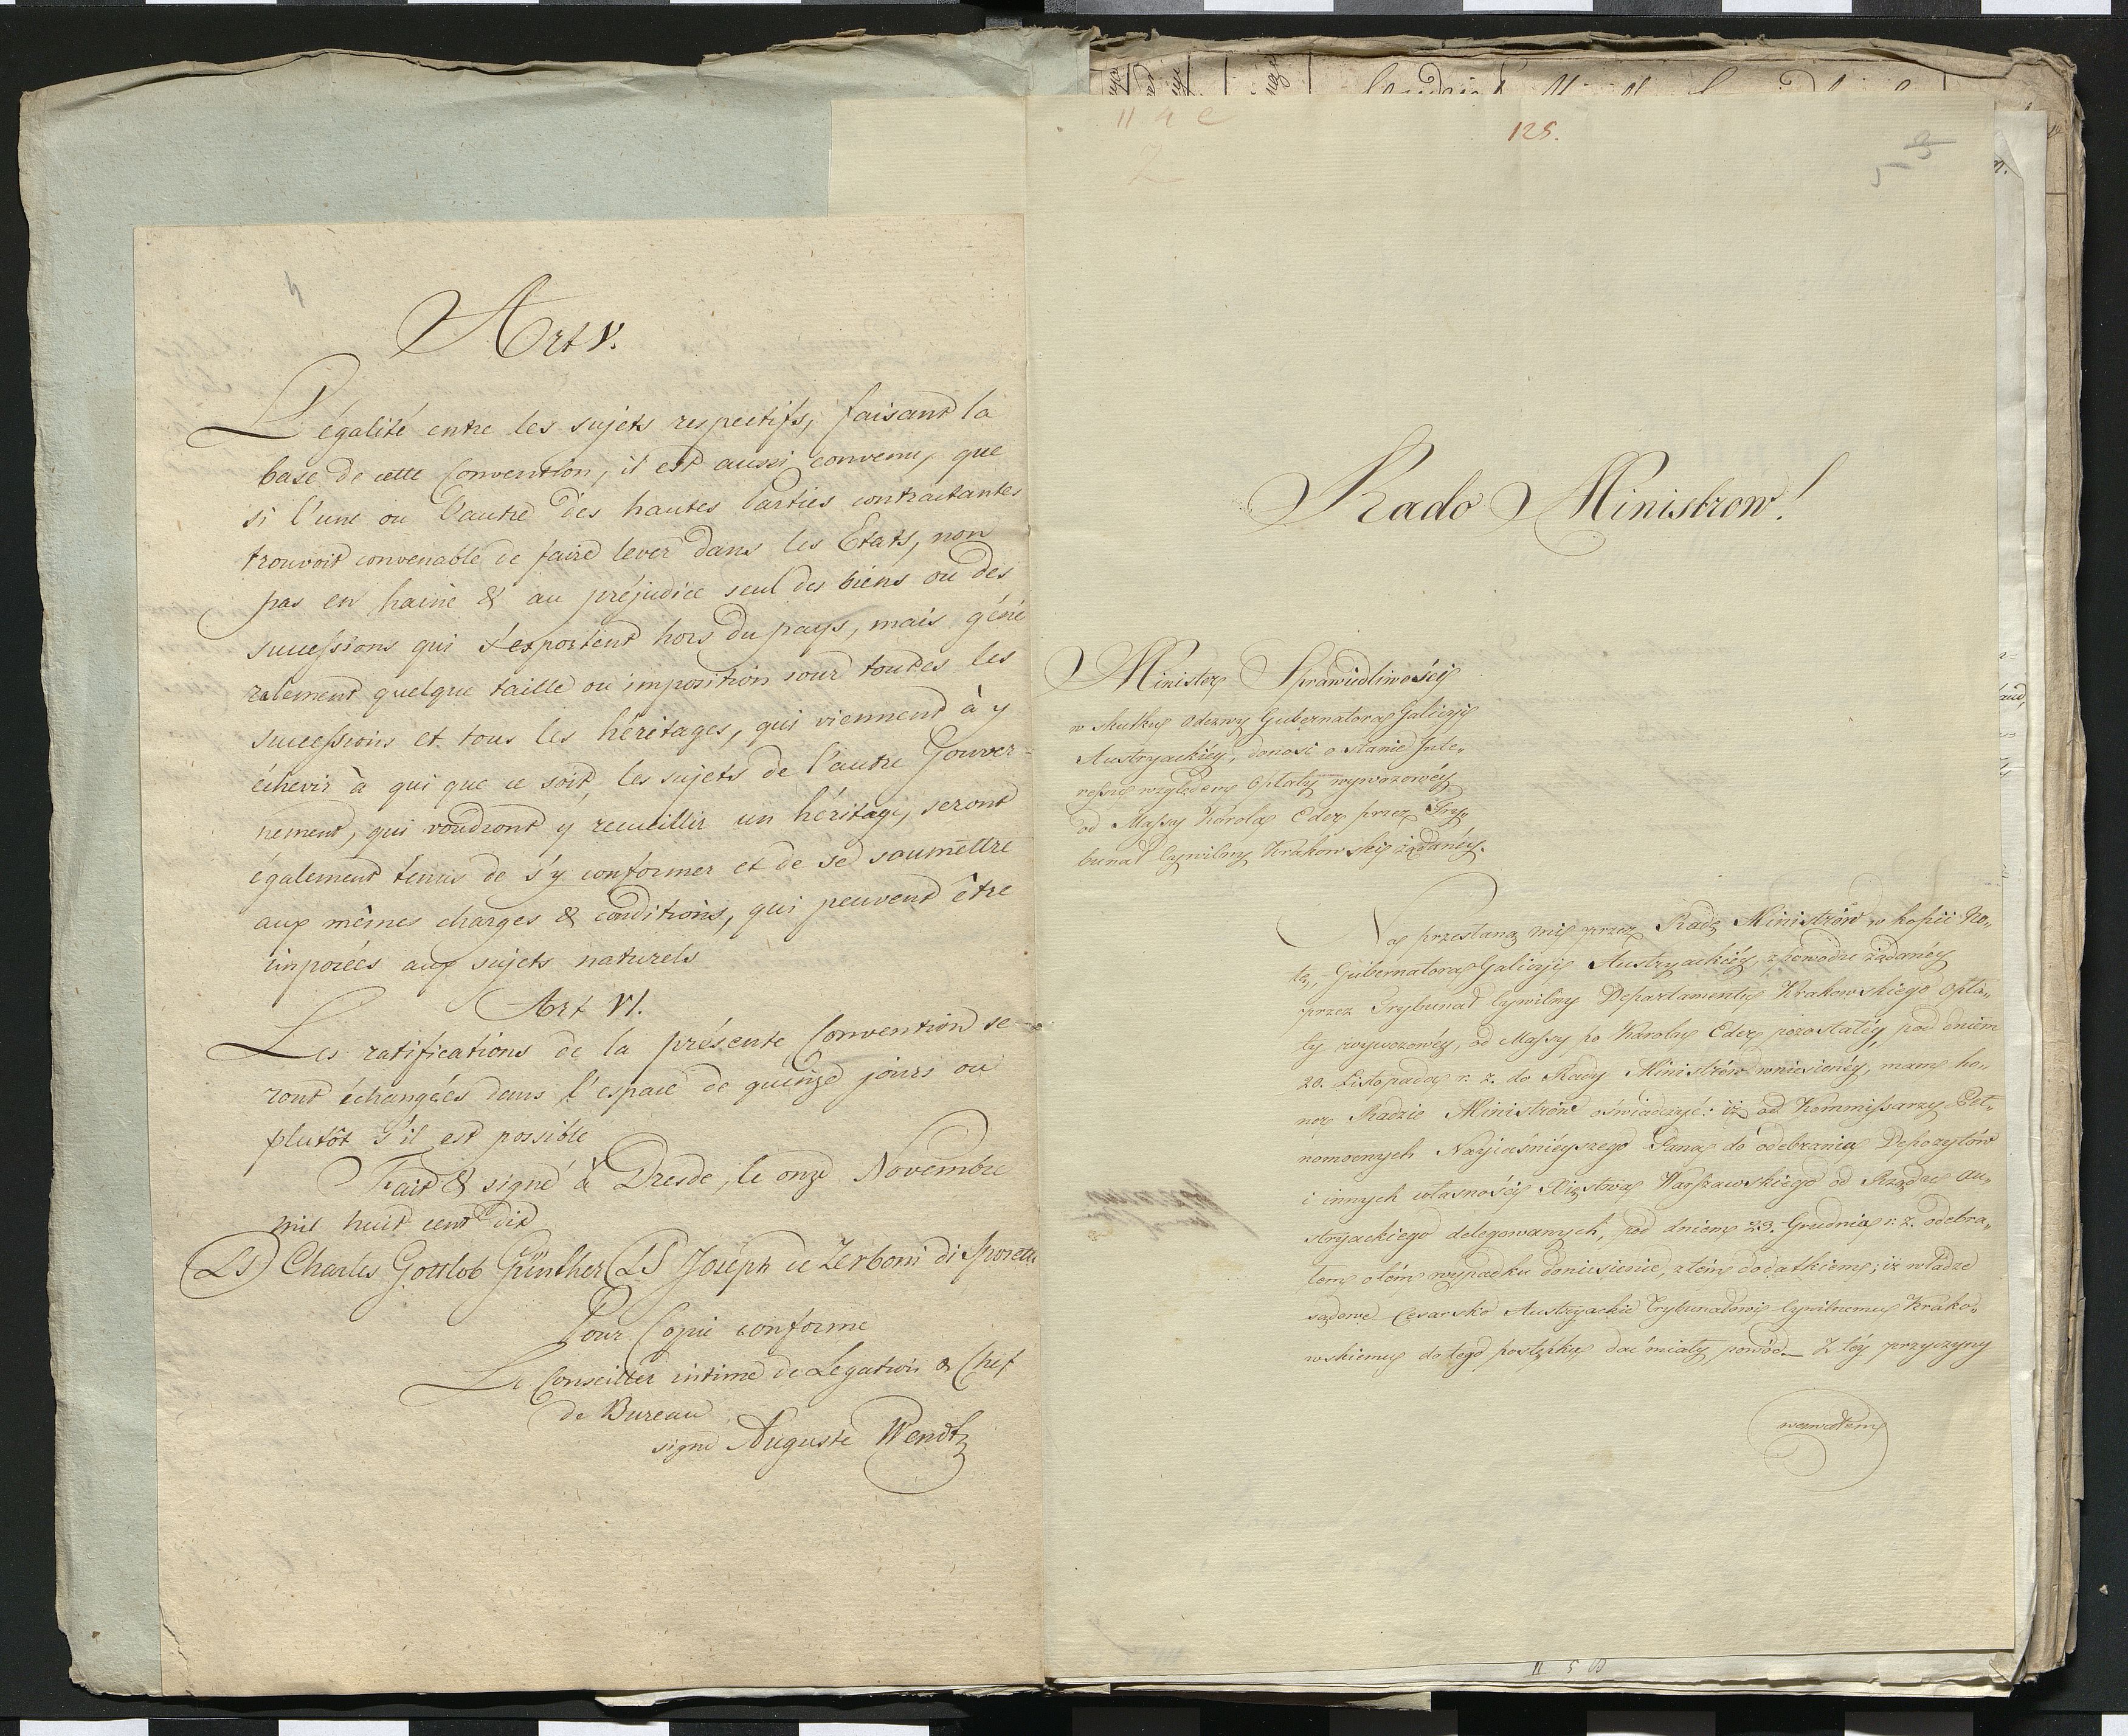 4
Art V.
L'égalité entre les sujets respectifs, faisant la
base de cette Convention, il est aussi convenu, que
si l'une ou l'autre des hautes Parties contractantes
trouvoit convenable de faire lever dans les Etats, non
pas en haine & au préjudice seul des biens ou des
successions qui s'exportent hors du pays, mais géné
ralement quelque taille ou imposition sour toutes les
successions et tous les héritages, qui viennent à y
échevir à qui que ce soit, les sujets de l'autre Gouver-
nement, qui voudront y recueillir un héritage, seront
également tenus de s'y conformer et de se soumettre
aux mêmes charges & conditions, qui peuvent être
imposées aux sujets naturels
Art VI.
Les ratifications de la présente Convention se-
ront échangées dans l'espace de quinze jours ou
plutôt s'il est possible
Fait & signé à Dresde, le onze Novembre
mil huit cent dix
(LS) Charles Gottlob Günther (LS) Joseph de Zerboni di Sposetti
Pour Copie conforme
Le Conseiller intime de Legation & Chef
de Bureau
signé Auguste Wendt
125.
5 3
Rado Ministrow!
Minister Sprawiedliwości
w skutku Odezwy Gubernatora Galicyi
Austryackiéy, donosi o stanie Inte„
ressu względem Opłaty wywozowéy
od Massy Karola Eder przez Try„
bunał Cywilny Krakowski żądanéy.
Na przesłaną mi przez Radę Ministrów w kopii No„
tę, Gubernatora Galicyi Austryackiéy, z powodu żądanéy
przez Trybunał Cywilny Departamentu Krakowskiego Opła„
ty wywozowéy, od Massy po Karolu Eder pozostałéy, pod dniem
20. Listopada r. z. do Rady Ministrów wniesionéy, mam ho„
nor Radzie Ministrów oświadczyć: iż od Kommissarzy Peł„
nomocnych Nayiaśnieyszego Pana do odebrania Depozytów
i innych własności Xięstwa Warszawskiego od Rządu Au„
stryackiego delegowanych, pod dniem 23. Grudnia r. z. odebra„
łem o tém wypadku doniesienie, z tém dodatkiem; iż władze
sądowe Cesarsko Austryackie Trybunałowi Cywilnemu Krako„
wskiemu do tego postępku dać miały powód. Z téy przyczyny
wezwałem